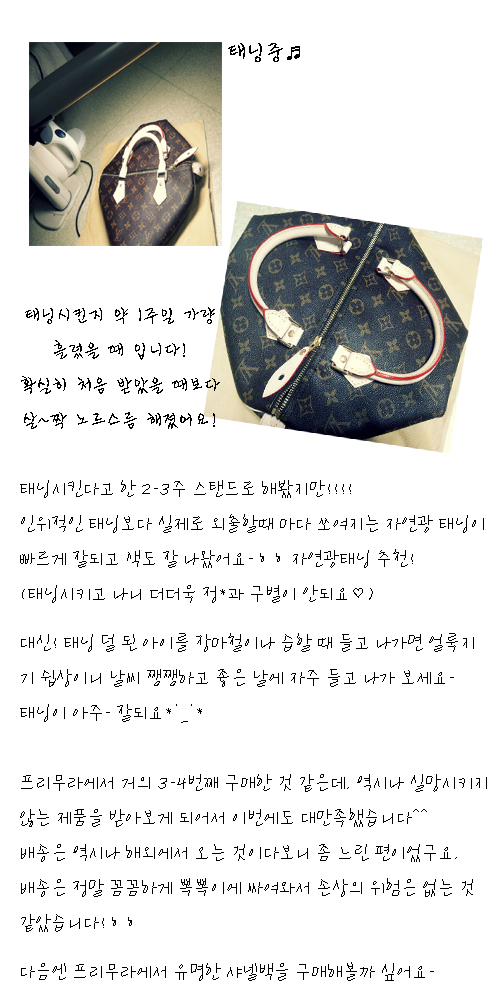 태닝중♬
태닝시킨지 약 1주일 가량
흘렀을 때 입니다!
확실히 처음 받았을 때보다
살~짝 노르스름 해졌어요!
태닝시킨다고 한 2-3주 스탠드로 해봤지만!!!!
인위적인 태닝보다 실제로 외출할때 마다 쏘여지는 자연광 태닝이
빠르게 잘되고 색도 잘 나왔어요-ㅎㅎ 자연광태닝 추천!
(태닝시키고 나니 더더욱 정*과 구별이 안되요♡)
대신! 태닝 덜 된 아이를 장마철이나 습할 때 들고 나가면 얼룩지
기 쉽상이니 날씨 쨍쨍하고 좋은 날에 자주 들고 나가 보세요-
태닝이 아주- 잘되요*˙_˙*
프리무라에서 거의 3-4번째 구매한 것 같은데, 역시나 실망시키지
않는 제품을 받아보게 되어서 이번에도 대만족했습니다^^
배송은 역시나 해외에서 오는 것이다보니 좀 느린 편이었구요,
배송은 정말 꼼꼼하게 뽁뽁이에 싸여와서 손상의 위험은 없는 것
같았습니다!ㅎㅎ
다음엔 프리무라에서 유명한 샤넬백을 구매해볼까 싶어요-